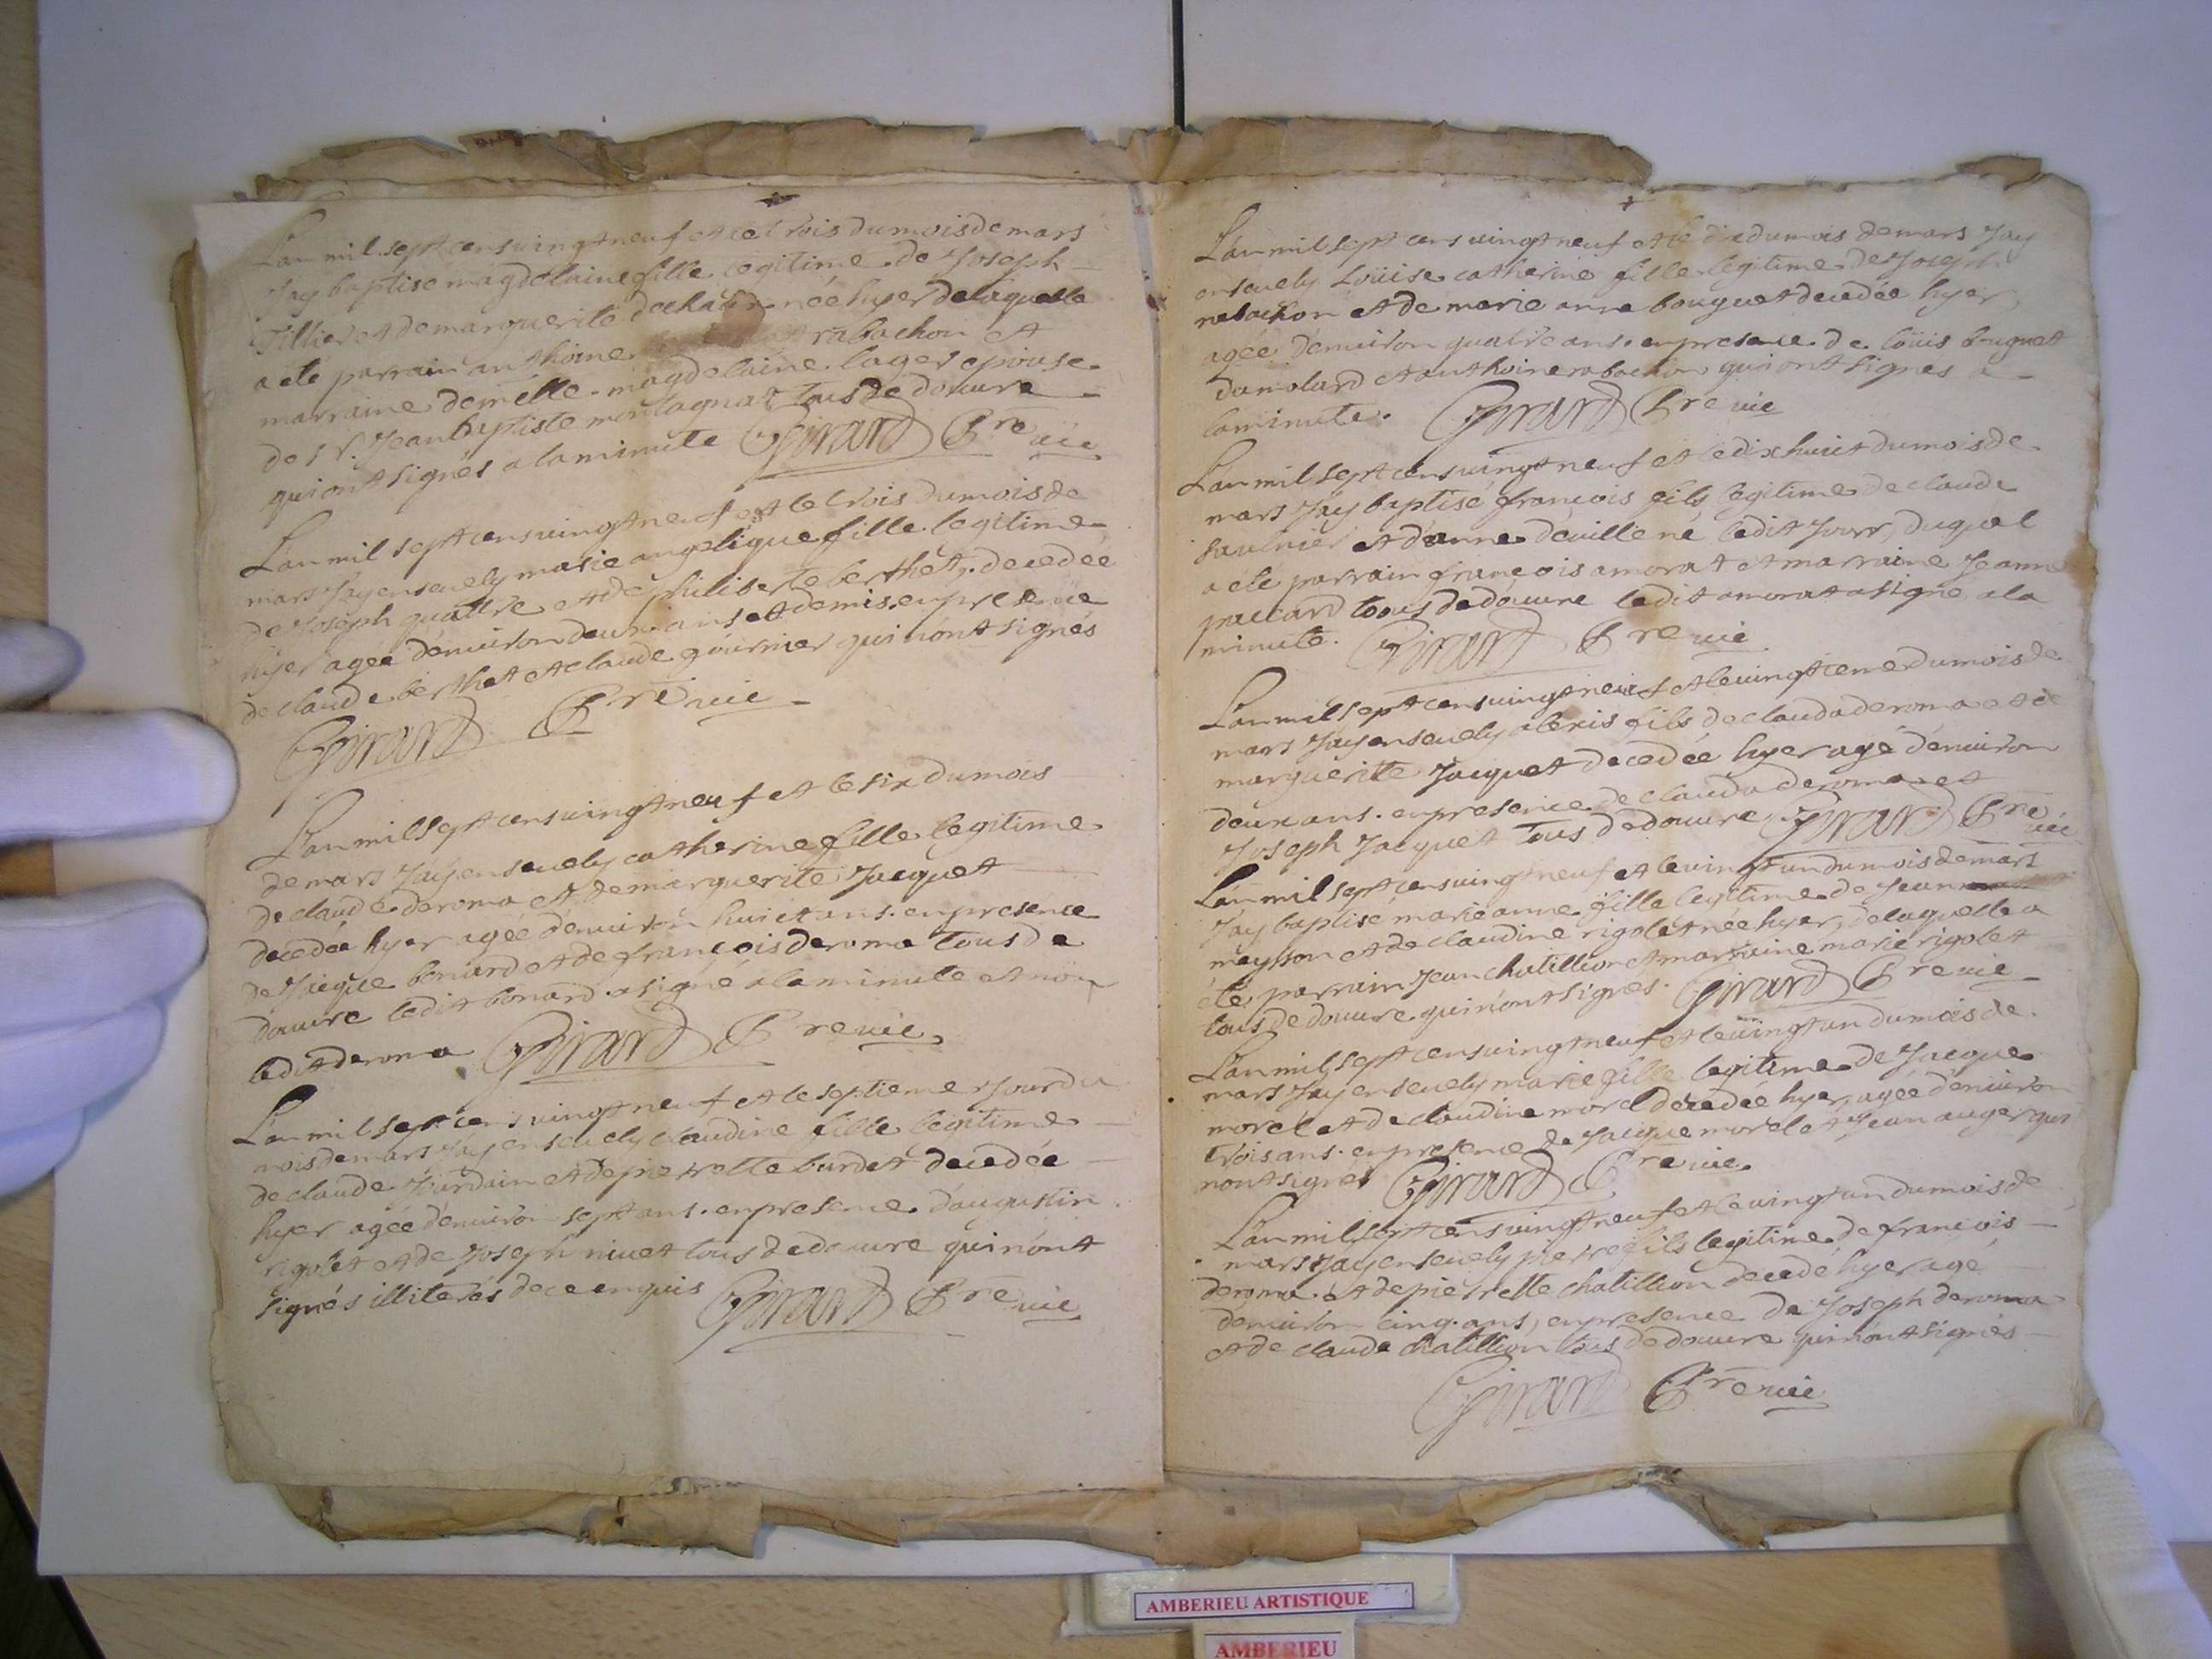 L'an mil sept cens vingt neuf et le trois du mois de mars
J'ay baptisé magdelaine fille legitime de Joseph
Tillier et de marguerite dechatir née hyer de laquelle
a eté parrain anthoine rabachon et
marraine demelle magdelaine lager epouse
de sr. Jean baptiste montagnat tous de douvre
qui ont signés a la minute Girard Pre vic
L'an mil sept cens vingt neuf et le trois du mois de
mars J'ay ensevely marie angelique fille legitime
de Joseph quattre et de philiberte berthet, decedée
hyer agée d'environ deux ans et demis, en presence
de claude berthet et claude gournier qui n'ont signés
Girard Pre vic
L'an mil sept cens vingt neuf et le six du mois
de mars J'ay ensevely catherine fille legitime
de claude deroma et de marguerite Jacquet
decedée hyer agée d'environ huict ans. en presence
de Jacque bonard et de françois deroma tous de
douvre ledit bonard a signé a la minute et non
ledit deroma Girard Pre vic
L'an mil sept cens vingt neuf et le septieme Jour du
mois de mars J'ay ensevely claudine fille legitime
de claude Jourdain et de pierrette burdet decedée
hyer agée d'environ sept ans. en presence d'augustin
rigolet et de Joseph nivet tous de douvre qui n'ont
signés illiterés de ce enquis Girard Pre vic
L'an mil sept cens vingt neuf et le dix du mois de mars J'ay
ensevely Loüise catherine fille legitime de Joseph
rabachon et de marie anne bouquet decedée hyer,
agée d'environ quatre ans. en presence de loüis bouquet
damolard et anthoine rabachon qui ont signés a
la minute. Girard Pre vic
L'an mil sept cens vingt neuf et le dix huict du mois de
mars J'ay baptisé françois fils legitime de claude
saulnier et d'anne deville né ledit Jour, duquel
a eté parrain françois amorat et marraine Jeanne
paccard tous de douvre ledit amorat a signé a la
minute. Girard Pre vic
L'an mil sept cens vingt neuf et le vingtieme du mois de
mars J'ay ensevely alexis fils de claude deroma et de
marguerite Jacquet decedée hyer agé d'environ
deux ans. en presence de claude deroma et
Joseph Jacquet tous de douvre Girard Pre vic
L'an mil sept cens vingt neuf et le vingt un du mois de mars
J'ay baptisé marie anne fille legitime de Jean
maysson et de claudine rigolet née hyer, de laquelle a
été parrain Jean chatillion et marraine marie rigolet
tous de douvre qui n'ont signés. Girard Pre vic
L'an mil sept cens vingt neuf et le vingt un du mois de
mars J'ay ensevely marie fille legitime de Jacque
morel et de claudine morel decedée hyer, agée d'environ
trois ans. en presence de Jacque morel et Jean auger qui
n'ont signés Girard Pre vic.
L'an mil sept cens vingt neuf et le vingt un du mois de
mars J'ay ensevely pierre fils legitime de françois
deroma et de pierrette chatillion decedé hyer agé
d'environ cinq ans, en presence de Joseph deroma
et de claude chatillion tous de douvre qui n'ont signés
Girard Pre vic
AMBERIEU ARTISTIQUE
AMBERIEU